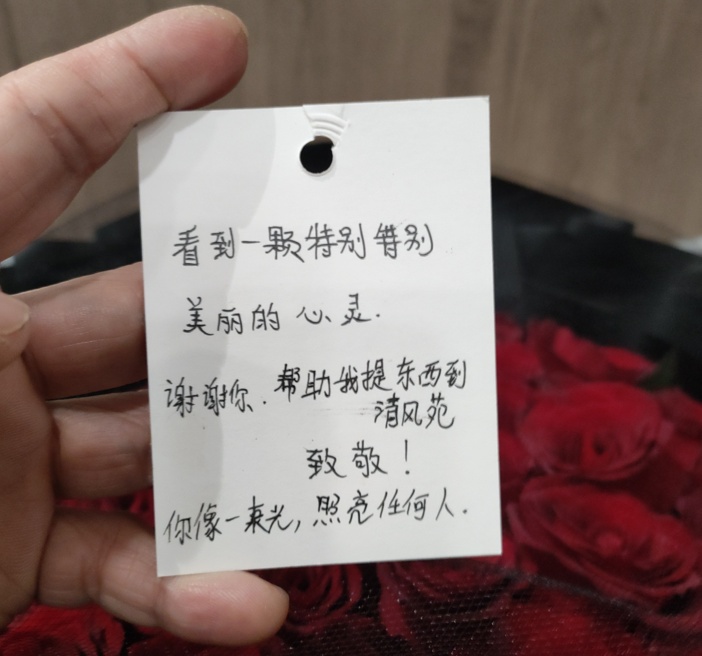 看到一颗特别特别
美丽的心灵.
谢谢你.帮助我提东西到
清风苑
致敬！
你像一束光,照亮任何人.